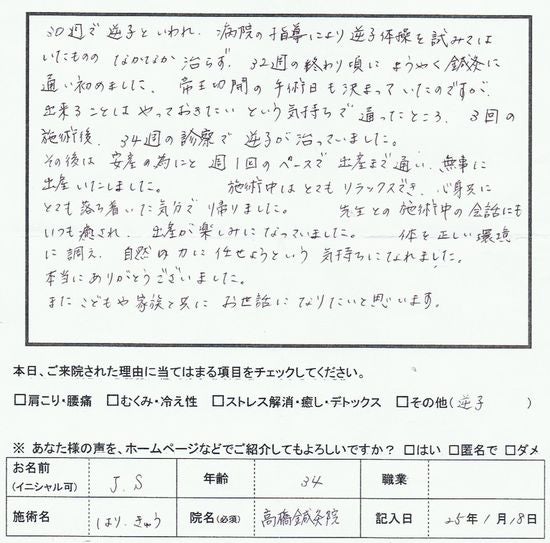 30週で逆子といわれ、病院の指導により逆子体操を試みては
いたものの なかなか治らず、32週の終わり頃に ようやく鍼灸に
通い初めました。帝王切開の手術日も決まっていたのですが、
出来ることは やっておきたい という気持ちで通ったところ、3回の
施術後、34週の診察で 逆子が治っていました。
その後は 安産の為にと 週1回のペースで 出産まで通い、無事に
出産いたしました。 施術中はとても リラックスでき、心身共に
とても落ち着いた気分で帰りました。 先生との施術中の会話にも
いつも癒され、出産が楽しみになっていました。 体を正しい環境
に調え、自然の力に任せようという 気持ちになれました。
本当にありがとうございました。
またこどもや家族と共に お世話になりたいと思います。
本日、ご来院された理由に当てはまる項目をチェックしてください。
□肩こり・腰痛 □むくみ・冷え性 □ストレス解消・癒し・デトックス □その他(逆子 )
※ あなた様の声を、ホームページなどでご紹介してもよろしいですか? □はい □匿名で □ダメ
お名前 (イニシャル可) J.S 年齢 34 職業
施術名 はり、きゅう 院名(必須) 高橋鍼灸院 記入日 25年1月18日